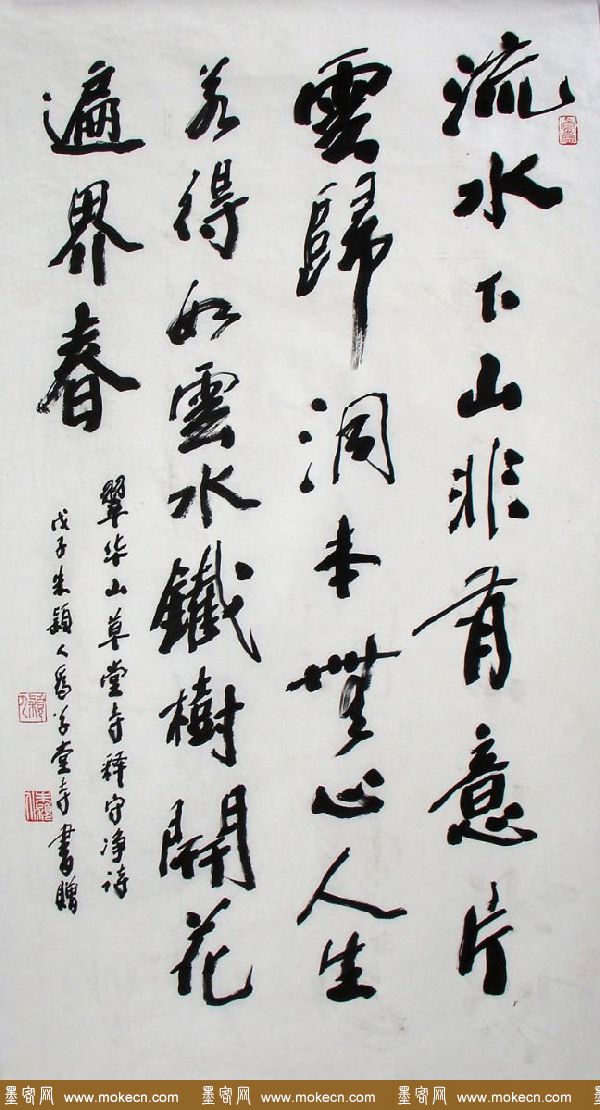 流水下山非有意片
雲歸洞本無心人生
若得如雲水鐵樹開花
遍界春
翠华山草堂寺释守净诗
戊子朱穎人為草堂寺書贈
墨客网 www.mokecn.com 墨客网 www.mokecn.com 墨客网 www.mokecn.com